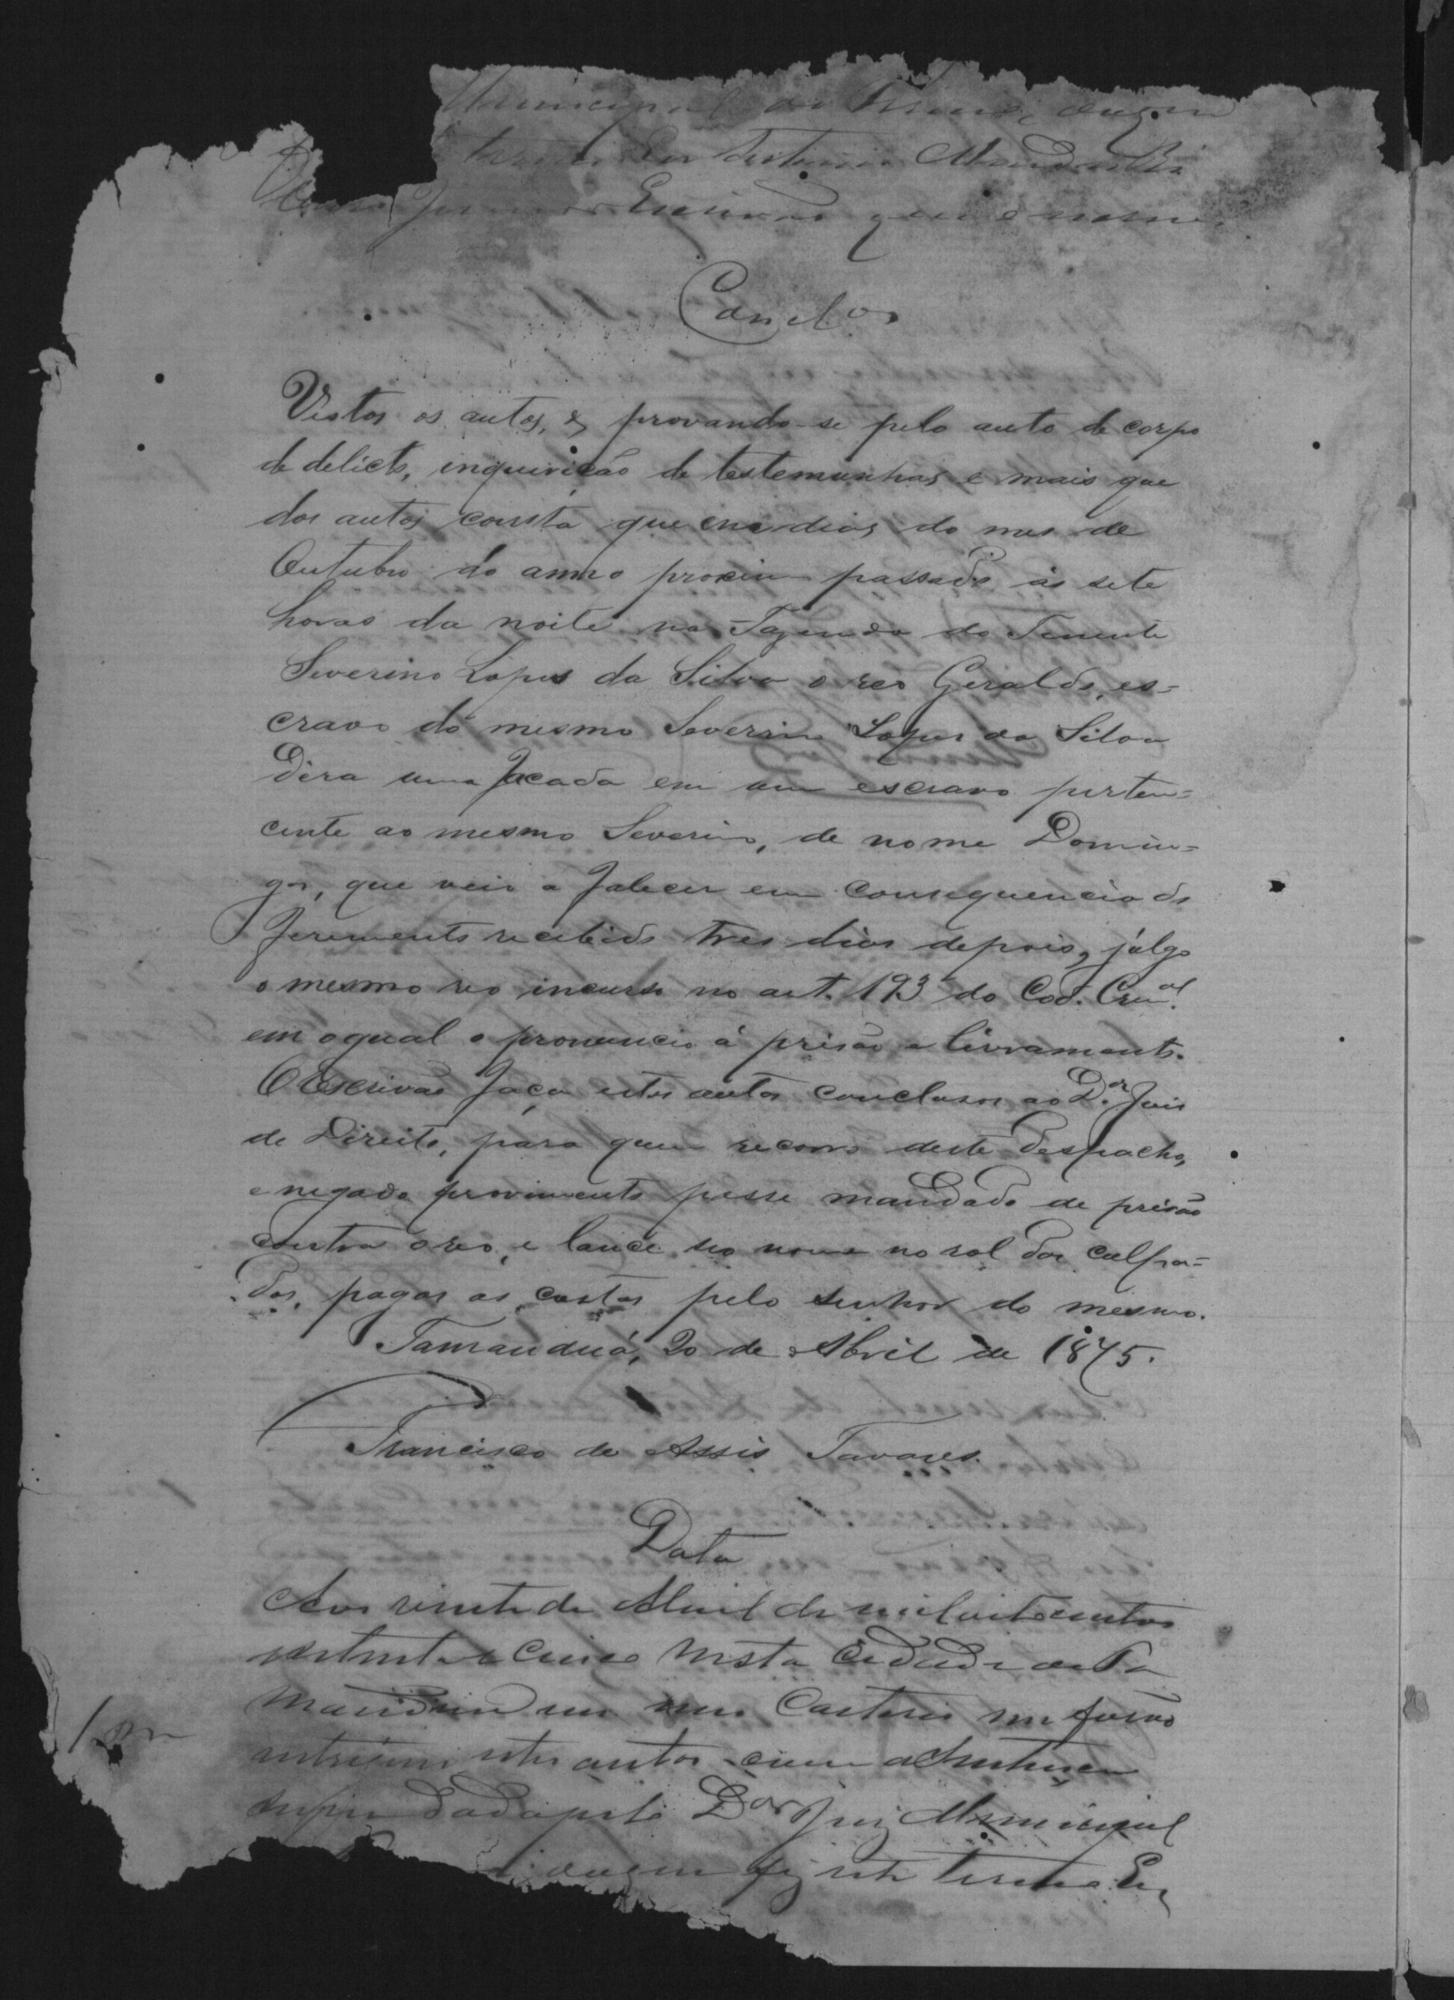 Municipal do Termo, do que
termo. Eu Antonio
Junior Escrivão que escrevi.
Conclos
Vistos os autos, & provando-se pelo auto de corpo
de delicto, inquirição de testemunhas e mais que
dos autos consta que em dias do mes de
Outubro do anno proximo passado ás sete
horas da noite na Fazenda do Tenente
Severino Lopes da Silva o reo Geraldo, es-
cravo do mesmo Severino Lopes da Silva
déra uma facada em um escravo perten-
cente ao mesmo Severino, de nome Domin-
gos, que veio a falecer em consequencia do
ferimento recebido tres dias depois, julgo
o mesmo reo incurso no art. 193 do Cod. Crim.al
em o qual o pronuncio á prisão e livramento.
O Escrivão faça estes autos conclusos ao D.or Juis
de Direito, para quem recorro deste despacho,
e negado provimento passe mandado de prisão
contra o reo, e lance seo nome no rol dos culpa-
dos, pagas as custas pelo senhor do mesmo.
Tamanduá, 20 de Abril de 1875.
Francisco de Assis Tavares.
Data
Aos vinte de Abril de mil oitocentos
setenta e cinco nesta Cidade de Ta
manduá em meu Cartorio me forão
entregues estes autos com a Sentença
supra dada pelo D.or Juiz Municipal
do que fiz este termo. Eu